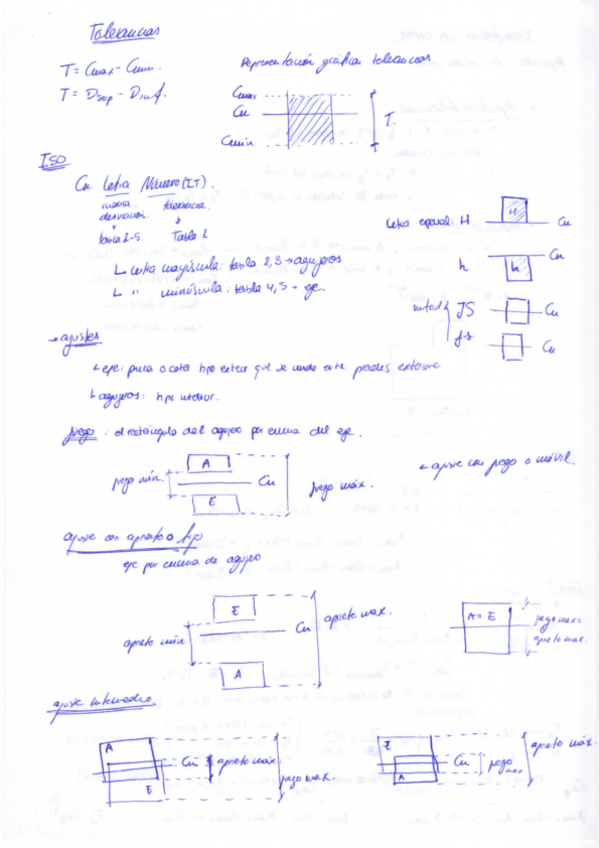 Tolerancias
T = Cmax - Cmin.
T = Dsup - Dinf.
Representación gráfica tolerancias
Cmax
Cn
Cmin
T.
ISO
Cn Letra Número (IT).
tolerancia.
desviación.
tabla 2-5. Tabla 1
Letra especial: H
H
Cn
h
h
Cn
JS
Cn
js
Cn
Letra mayúscula: tabla 2,3 → agujeros
" minúscula: tabla 4,5 → eje.
→ ajustes
eje: pieza o cota tipo exterior que se mide entre paredes exteriores
agujeros: tipo interior.
juego: el rectángulo del agujero por encima del eje.
← ajuste con juego o móvil.
A
juego min.
Cn
juego máx.
E
ajuste con aprieto o fijo
eje por encima de agujero
E
Cn
aprieto max.
aprieto min
A
A = E
juego max =
aprieto max.
ajuste intermedio.
A
Cn
aprieto máx
juego max.
E
E
Cn
juego max
aprieto máx.
A